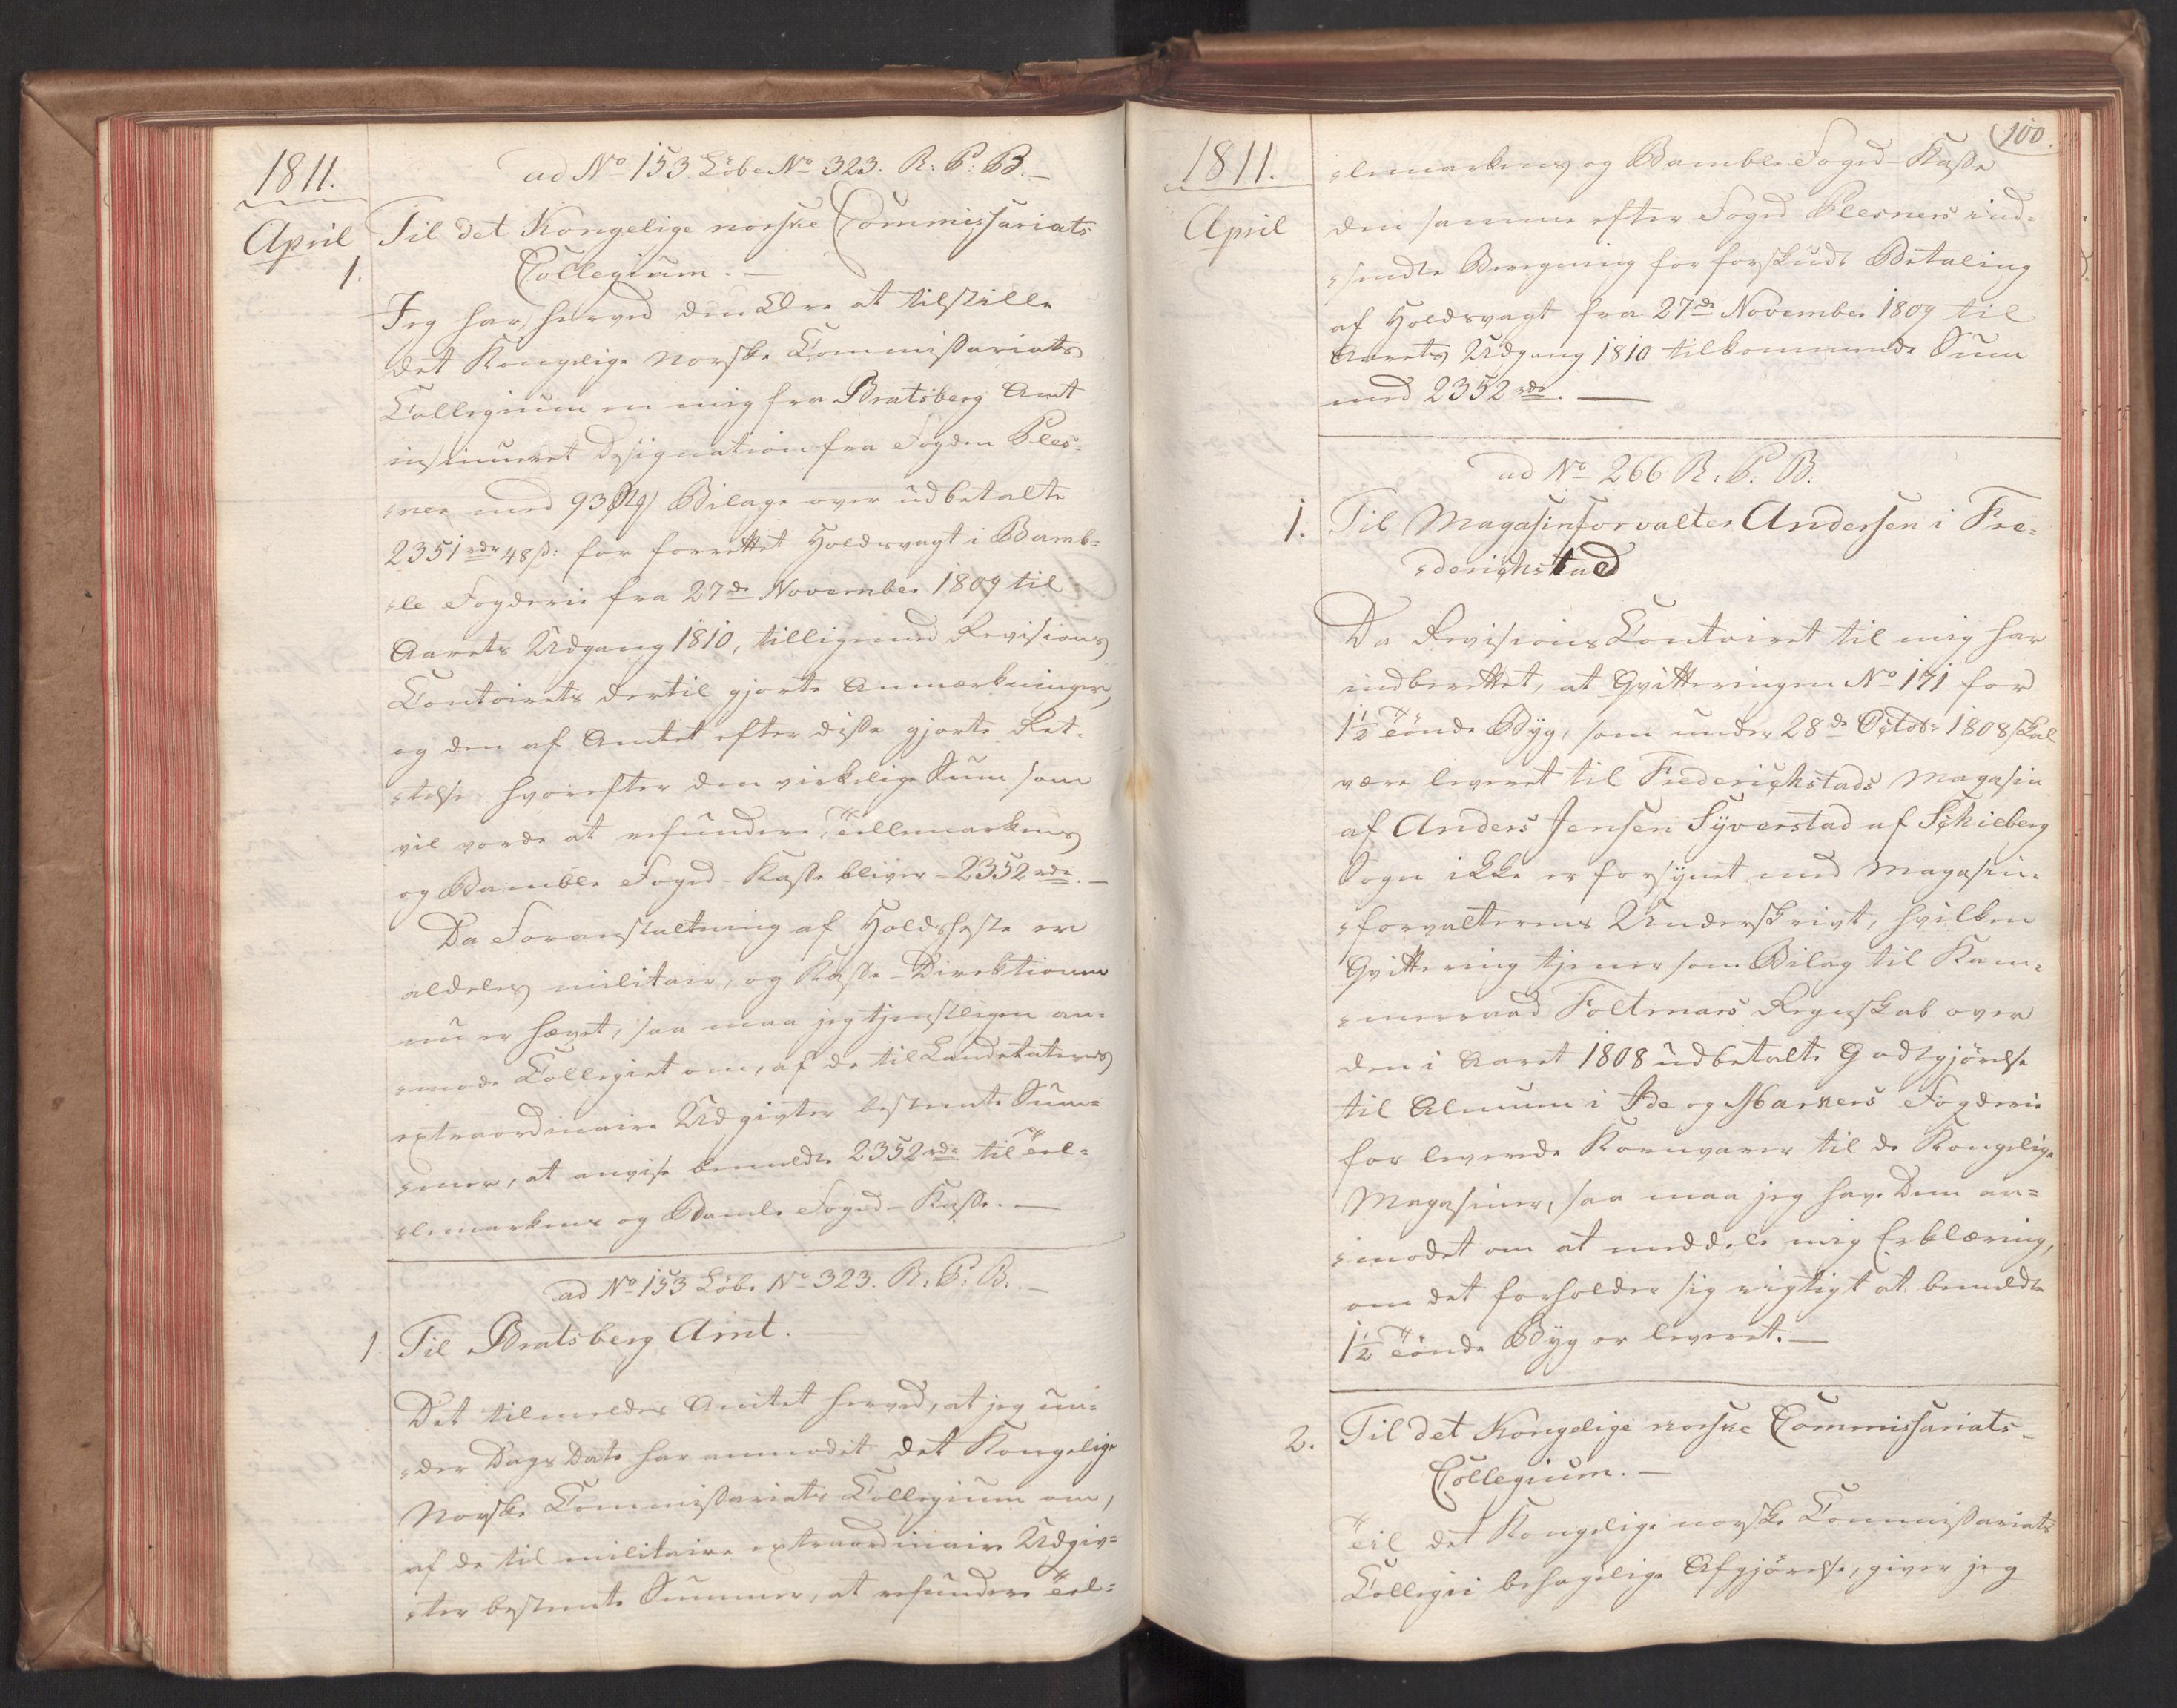 1811.
ad No 153 Löbe No 323. R: P: B. –
April
Til det Kongelige norske Commissariats
1.
Collegium. –
Jeg har herved den Ære at tilstille
det Kongelige Norske Commissariats
Collegium en mig fra Bratsberg Amt
insinueret Designation fra Fogden Ples-
-ner med 93 Bilage over udbetalte
2351 rdr 48 s: for forrettet Holdsvagt i Bamb-
-le Fogderie fra 27de November 1809 til
Aarets Udgang 1810, tilligemed Revisions
Contoirets dertil gjorte Anmærkninger,
og den af Amtet efter disse gjorte Ret-
-telse hvorefter den virkelige Sum som
vil vorde at refundere Tellemarkens
og Bamble Foged-Kasse bliver = 2352 rdr. –
Da Foranstaltning af Holdsheste er
aldeles militair, og Kasse-Direktionen
nu er hævet, saa maa jeg tjenstligen an-
-mode Collegiet om, af de til Landetatens
extraordinaire Udgivter bestemte Sum-
-mer, at anvise bemeldte 2352 rdr til Tel-
-lemarkens og Bamle Foged-Kasse. –
ad No 153 Löbe No 323. R: P: B. –
1. Til Bratsberg Amt.
Det tilmeldes Amtet herved, at jeg un-
-der Dags Dato har anmodet det Kongelige
Norske Commissariats Collegium om,
af de til militaire extraordinaire Udgiv-
-ter bestemte Summer, at refundere Tel-
1811.
100.
April
-lemarkens og Bamble Foged-Kasse
den samme efter Foged Plesners ind-
-sendte Beregning for forskuds Betaling
af Holdsvagt fra 27de November 1809 til
Aarets Udgang 1810 tilkommende Sum
med 2352 rdr. –
ad No 266 R. P. B.
1. Til Magasinforvalter Andersen i Fre-
-derichstad
Da Revisions Contoiret til mig har
indberettet, at Qvitteringen No 171 for
1 1/2 Tönde Byg, som under 28de Octobr 1808 skal
være leveret til Frederichstads Magasin
af Anders Jensen Syverstad af Schieberg
Sogn ikke er forsynet med Magasin-
-forvalterens Underskrivt, hvilken
Qvittering tjener som Bilag til Kam-
-merraad Foltmars Regnskab over
den i Aaret 1808 udbetalte Godtgjörelse
til Almuen i Ide og Markers Fogderie
for leverede Kornvarer til de Kongelige
Magasiner, saa maa jeg have Dem an-
-modet om at meddele mig Erklæring,
om det forholder sig rigtigt at bemeldte
1 1/2 Tönde Byg er leveret. –
2. Til det Kongelige norske Commissariats-
Collegium. –
Til det Kongelige norske Commissariats
Collegii behagelige Afgjörelse, giver jeg